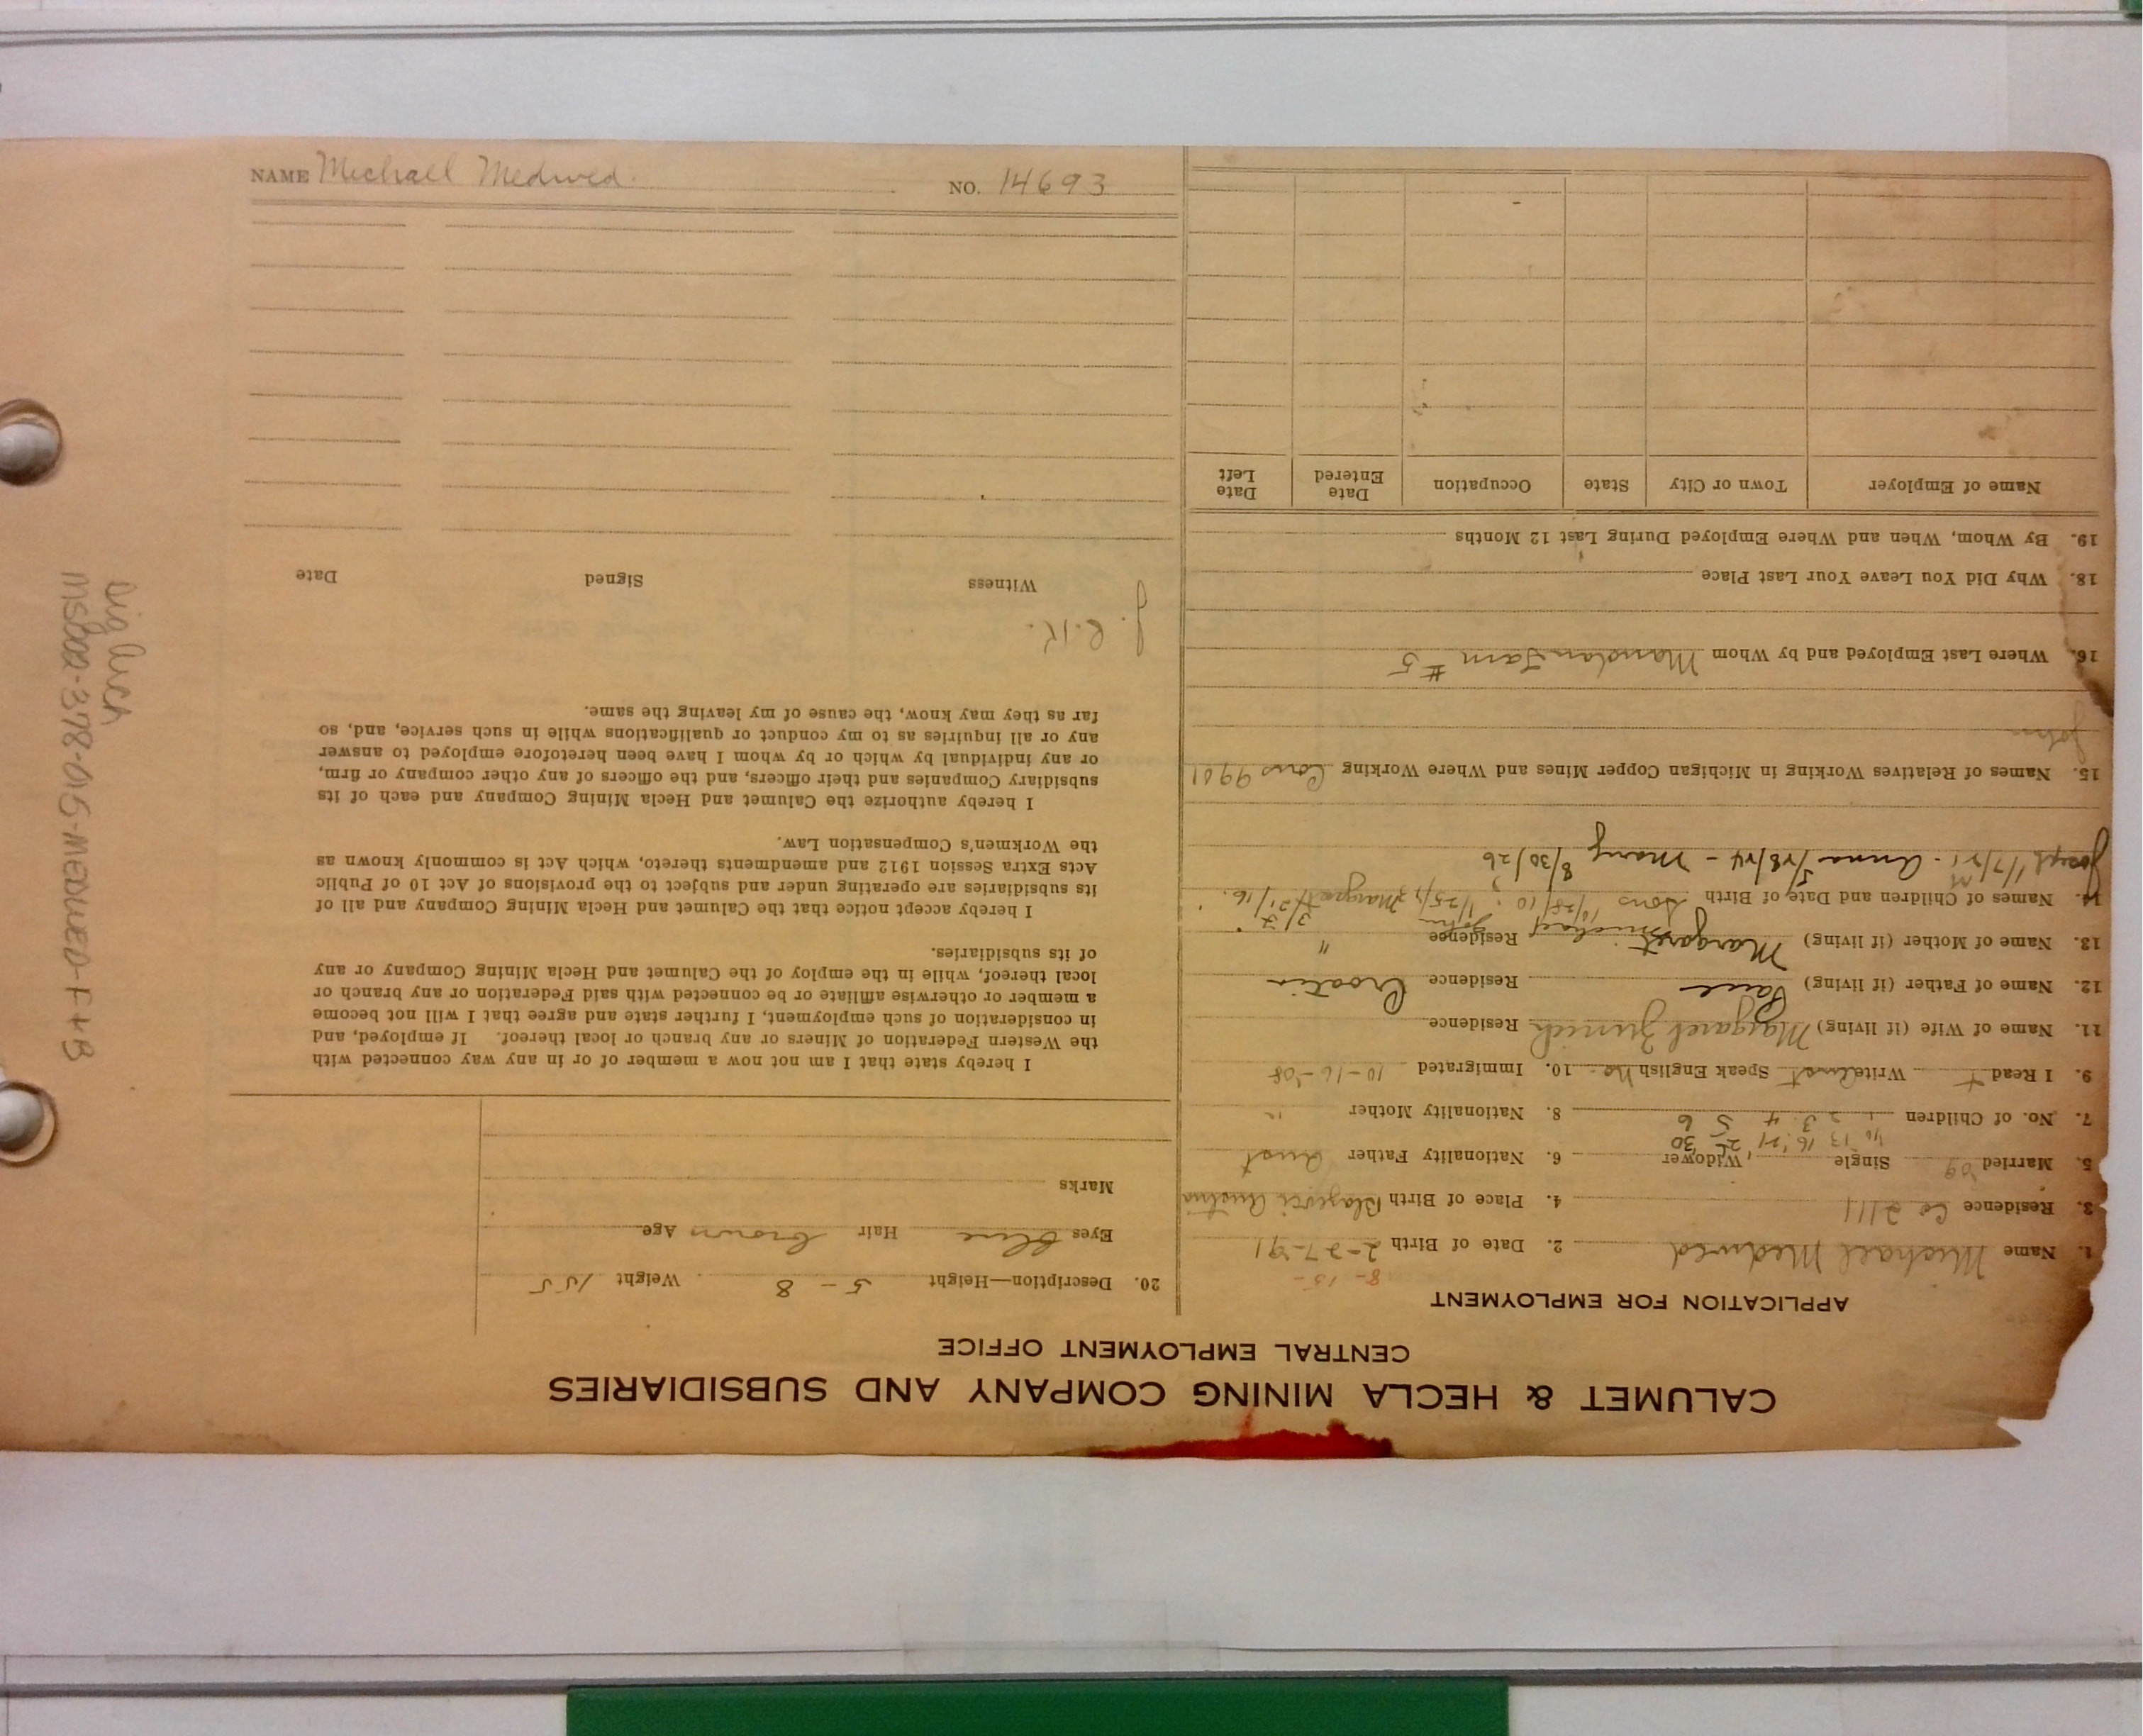 CALUMET & HECLA MINING COMPANY AND SUBSIDIARIES
CENTRAL EMPLOYMENT OFFICE
APPLICATION FOR EMPLOYMENT
8-15-
1. Name Michael Medved 2. Date of Birth 2-27-91
3. Residence Co 2111 4. Place of Birth Austria
5. Married 09 Single Widower 6. Nationality Father Aust
'10 13 16 '21 25 30
7. No. of Children 1 2 3 4 5 6 8. Nationality Mother "
9. I Read + Write Aust Speak English No 10. Immigrated 10-16-08
11. Name of Wife (if living) Margaret Residence
12. Name of Father (if living) Residence Croatia
13. Name of Mother (if living) Margaret Residence "
Michael John
14. Names of Children and Date of Birth Sons 10/28/10 1/25/13 Margaret 3/21/16
Joseph 1/7/21 - Anna 5/28/24 - Mary 8/30/26
15. Names of Relatives Working in Michigan Copper Mines and Where Working Cous 9901
John
16. Where Last Employed and by Whom
#5
18. Why Did You Leave Your Last Place
19. By Whom, When and Where Employed During Last 12 Months
Name of Employer Town or City State Occupation Date Entered Date Left
20. Description—Height 5-8 Weight 155
Eyes Blue Hair brown Age
Marks
I hereby state that I am not now a member of or in any way connected with
the Western Federation of Miners or any branch or local thereof. If employed, and
in consideration of such employment, I further state and agree that I will not become
a member or otherwise affiliate or be connected with said Federation or any branch or
local thereof, while in the employ of the Calumet and Hecla Mining Company or any
of its subsidiaries.
I hereby accept notice that the Calumet and Hecla Mining Company and all of
its subsidiaries are operating under and subject to the provisions of Act 10 of Public
Acts Extra Session 1912 and amendments thereto, which Act is commonly known as
the Workmen's Compensation Law.
I hereby authorize the Calumet and Hecla Mining Company and each of its
subsidiary Companies and their officers, and the officers of any other company or firm,
or any individual by which or by whom I have been heretofore employed to answer
any or all inquiries as to my conduct or qualifications while in such service, and, so
far as they may know, the cause of my leaving the same.
J. C. K.
Witness Signed Date
NAME Michael Medwed. NO. 14693
MS002-378-015-MEDWED-F+B